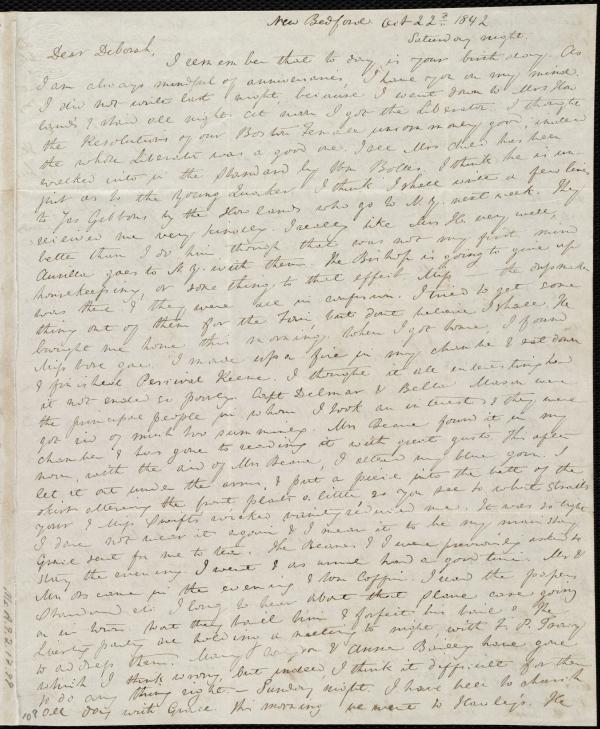 New Bedford Oct 22d 1842
Saturday night.
Dear Deborah,
I remember that to day is your birth day. As
I am always mindful of anniversaries, I have you in my mind.
I did not write last night because I went down to Mrs How
lands & staid all night. At noon I got the Liberator. I thought
the Resolutions of our Boston Female uncommonly good, indeed
the whole Liberator was a good one. I see Mrs Child has been
walked into in the Standard by Wm Bolles. I think he is un
just as to the Young Quaker. I think I shall write a few lines
to Jas Gibbons by the Howlands who go to N.Y. next week. They
received me very kindly. I really like Mrs H. very well,
better than I do him, though that was not my first mind
Aurelia goes to N.Y. with them. The Bishop is going to give up
housekeeping, or some thing to that effect. Miss the dressmaker
was there & they were all in confusion. I tried to get some
thing out of them for the Fair, but dont believe I shall. He
brought me home this morning. When I got home, I found
Miss gone. I made up a fire in my chamber & sat down
& finished Percival Keene. I thought it all interesting had
it not ended so poorly. Capt Delmar & Bella Mason were
the principal people in whom I took an interest & they were
got rid of much too summarily. Mrs Beane found it in my
chamber & has gone to reading it with great gusto. This after
noon, with the aid of Mrs Beane, I altered my blue gown. I
let it out under the arms, & put a piece into the back of the
skirt altering the front plaits a little so you see to what straits
your & Miss Swifts wicked vanity reduced me. It was so tight
I dare not wear it again & I mean it to be my main stay
Grace sent for me to tea. The Beanes & I were previously asked to
stay the evening. I went & as usual had a good time. Mr &
Mrs came in the evening & Tom Coffin. I read the papers
Standard etc. I long to hear about that slave case going
on in town that they bail him & forfeit his bail. The
Liberty party are holding a meeting to night, with J. P.
to address them. Mary & Anna Bailey have gone
which I think wrong, but indeed I think it difficult for them
to do any thing right. - Sunday night. I have been to church
all day with Grace. This morning we went to Hawley's. He
Ms.A.9.2.17.99
109